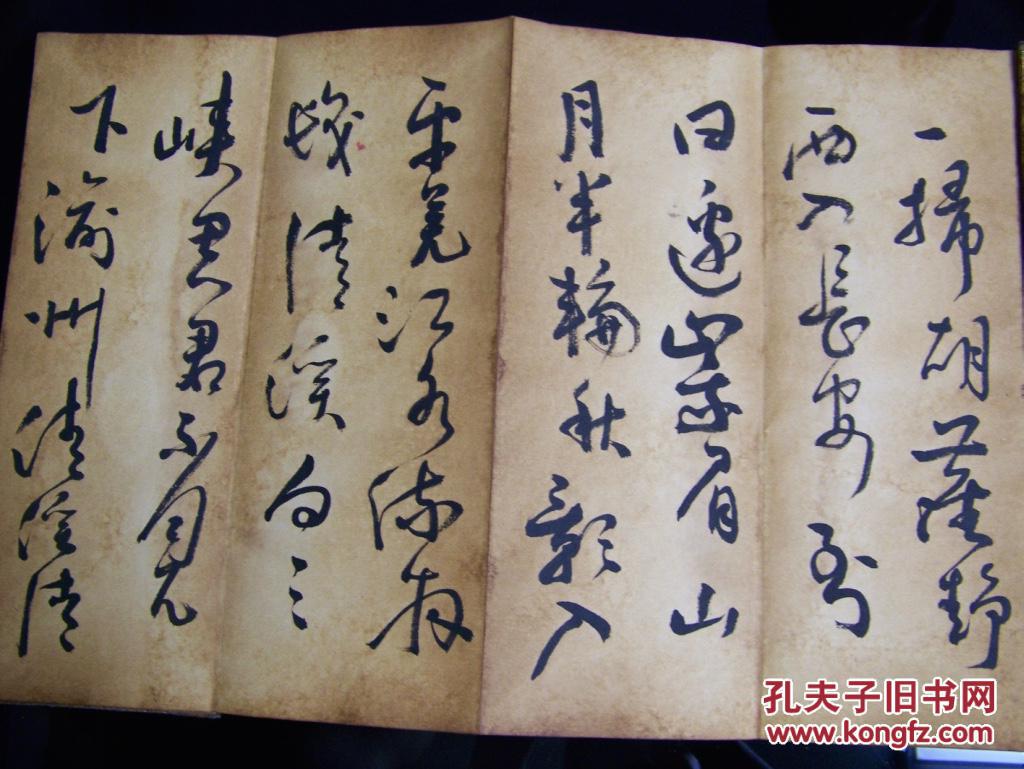 一掃胡塵靜
西入長安到
日邊峨眉山
月半輪秋影入
平羌江水流夜
發清溪向三
峽思君不見
下渝州清溪清
孔夫子旧书网
www.kongfz.com